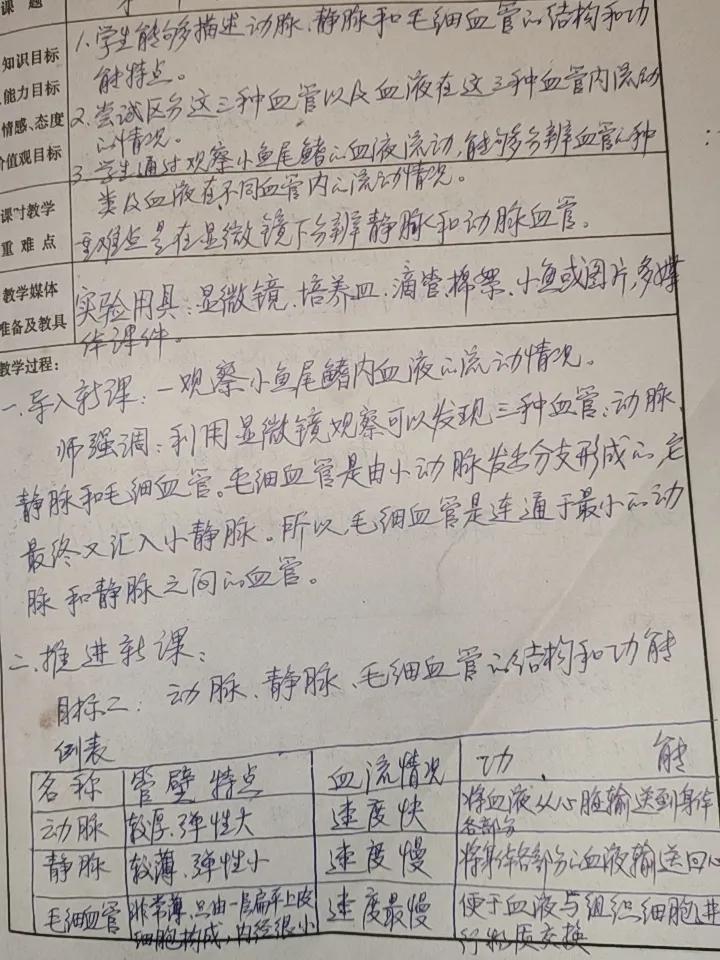 课 题
知识目标
能力目标
情感、态度
价值观目标
1. 学生能够多描述动脉、静脉和毛细血管的结构和功
能特点。
2. 尝试区分这三种血管以及血液在这三种血管内流动
的情况。
3. 学生通过观察小鱼尾鳍的血液流动,能够多分辨血管的种
类及血液在不同血管内的流动情况。
课时教学
重 难 点
重难点是在显微镜下分辨静脉和动脉血管。
教学媒体
准备及教具
实验用具:显微镜、培养皿、滴管、棉絮、小鱼或图片,多媒
体课件。
教学过程:
一、导入新课:一观察小鱼尾鳍内血液的流动情况。
师强调:利用显微镜观察可以发现三种血管:动脉、
静脉和毛细血管。毛细血管是由小动脉发出分支形成的,它
最终又汇入小静脉。所以,毛细血管是连通于最小的动
脉和静脉之间的血管。
二、推进新课:
目标二:动脉、静脉、毛细血管的结构和功能
例表
名称 管壁特点 血流情况 功 能
动脉 较厚、弹性大 速度快 将血液从心脏输送到身体
各部分
静脉 较薄、弹性小 速度慢 将身体各部分的血液输送回心
毛细血管 非常薄,只由一层扁平上皮
细胞构成,内径很小 速度最慢 便于血液与组织细胞进
行物质交换